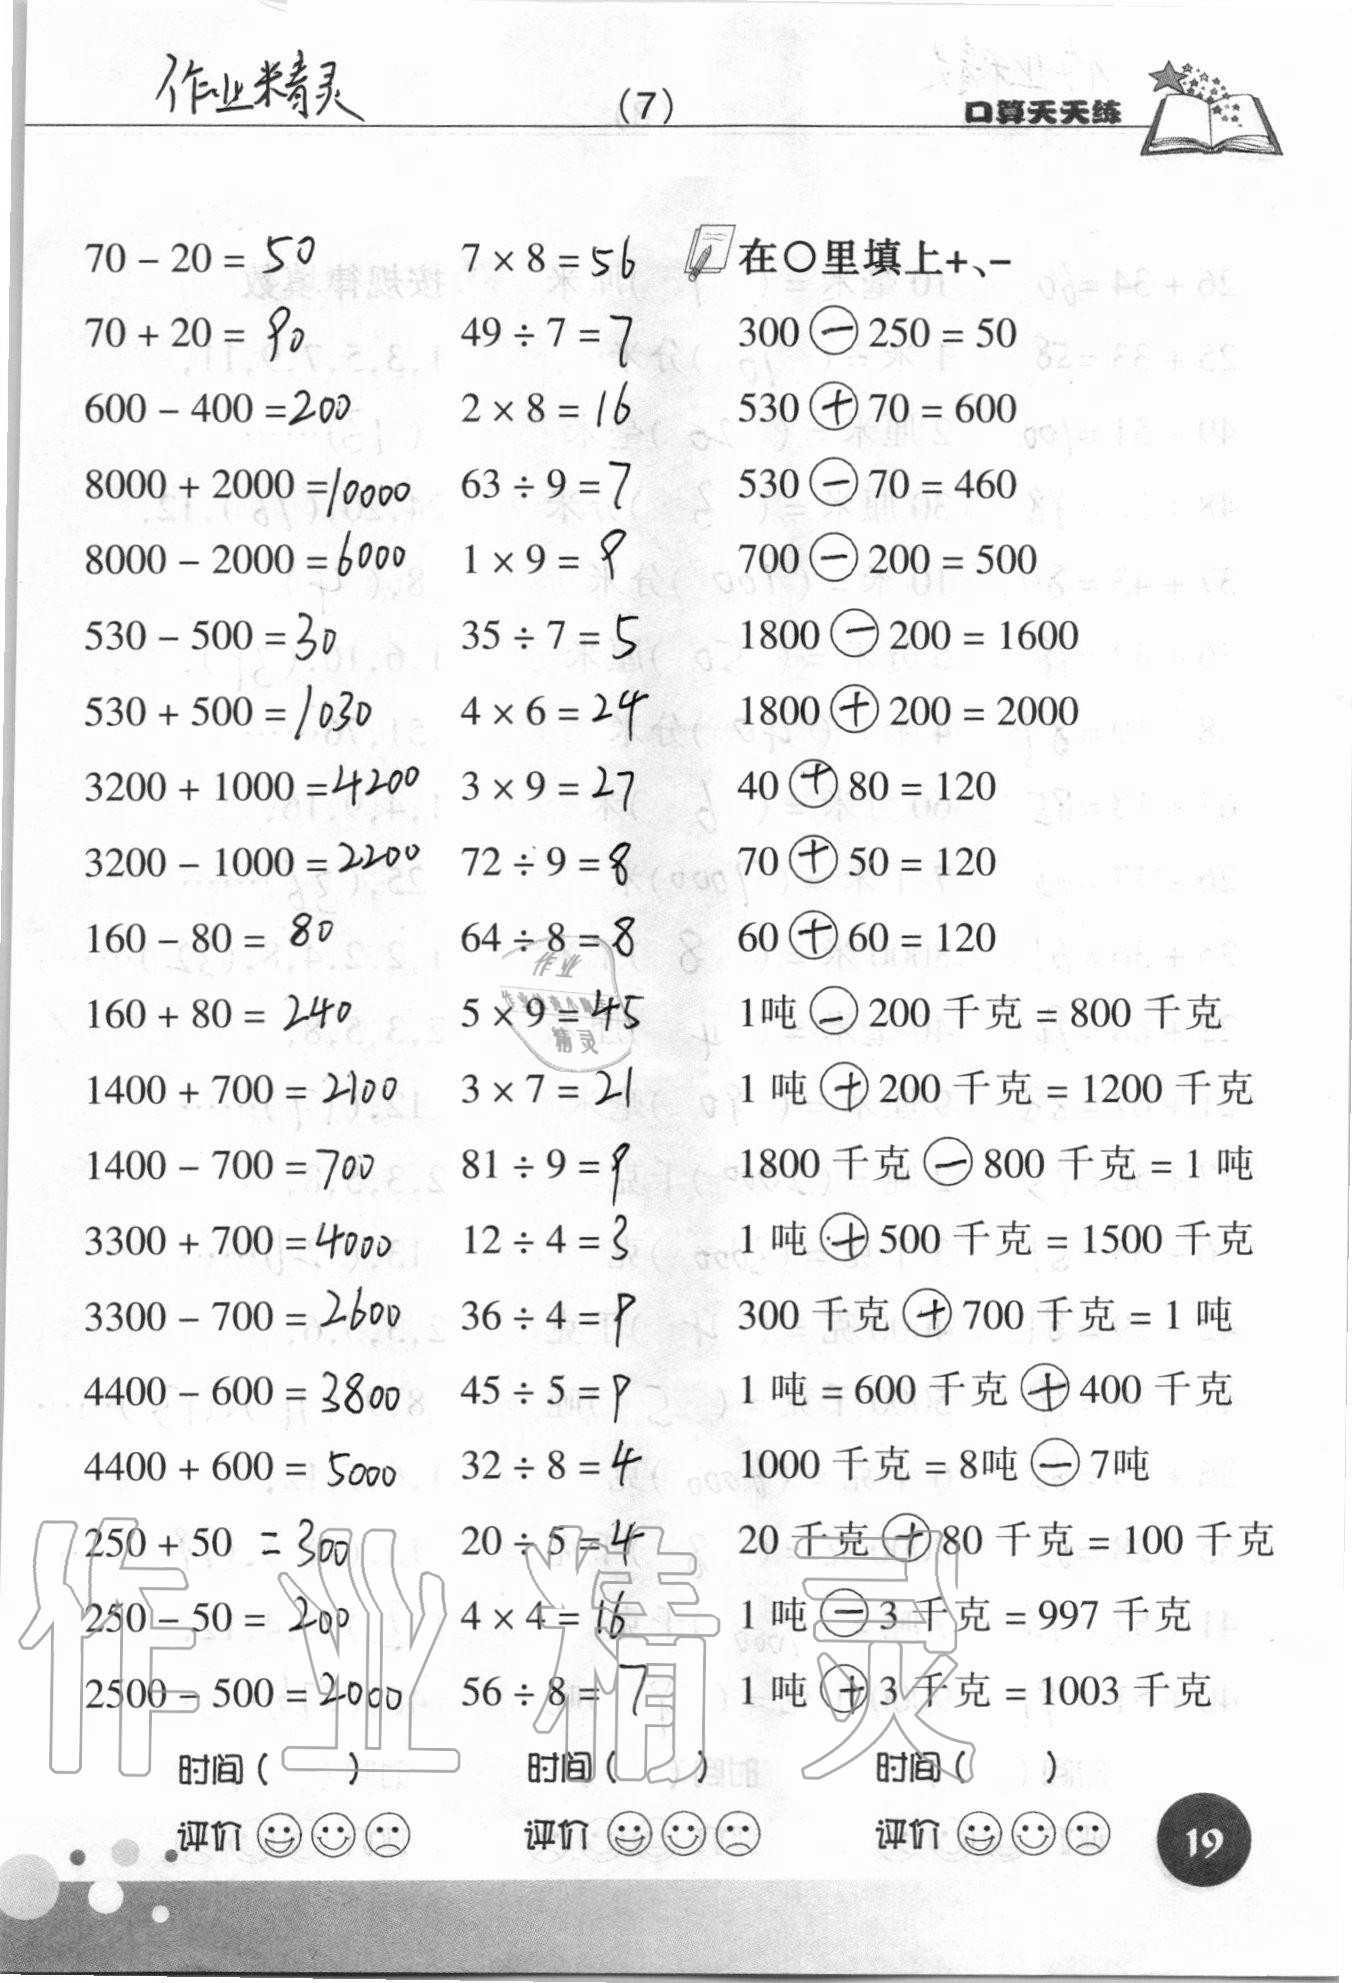 作业精灵
(7)
口算天天练
70 − 20 = 50
70 + 20 = 90
600 − 400 = 200
8000 + 2000 = 10000
8000 − 2000 = 6000
530 − 500 = 30
530 + 500 = 1030
3200 + 1000 = 4200
3200 − 1000 = 2200
160 − 80 = 80
160 + 80 = 240
1400 + 700 = 2100
1400 − 700 = 700
3300 + 700 = 4000
3300 − 700 = 2600
4400 − 600 = 3800
4400 + 600 = 5000
250 + 50 = 300
250 − 50 = 200
2500 − 500 = 2000
时间 ( )
评价
7 × 8 = 56
49 ÷ 7 = 7
2 × 8 = 16
63 ÷ 9 = 7
1 × 9 = 9
35 ÷ 7 = 5
4 × 6 = 24
3 × 9 = 27
72 ÷ 9 = 8
64 ÷ 8 = 8
5 × 9 = 45
3 × 7 = 21
81 ÷ 9 = 9
12 ÷ 4 = 3
36 ÷ 4 = 9
45 ÷ 5 = 9
32 ÷ 8 = 4
20 ÷ 5 = 4
4 × 4 = 16
56 ÷ 8 = 7
时间 ( )
评价
在○里填上+、−
300 − 250 = 50
530 + 70 = 600
530 − 70 = 460
700 − 200 = 500
1800 − 200 = 1600
1800 + 200 = 2000
40 + 80 = 120
70 + 50 = 120
60 + 60 = 120
1吨 − 200 千克 = 800 千克
1 吨 + 200 千克 = 1200 千克
1800 千克 − 800 千克 = 1 吨
1 吨 + 500 千克 = 1500 千克
300 千克 + 700 千克 = 1 吨
1 吨 = 600 千克 + 400 千克
1000 千克 = 8吨 − 7吨
20 千克 + 80 千克 = 100 千克
1 吨 − 3 千克 = 997 千克
1 吨 + 3 千克 = 1003 千克
时间 ( )
评价
作业
精灵
作业精灵
19